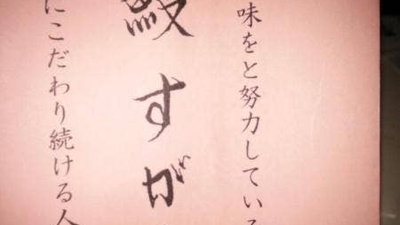 味をと努力している
すが
にこだわり続ける人